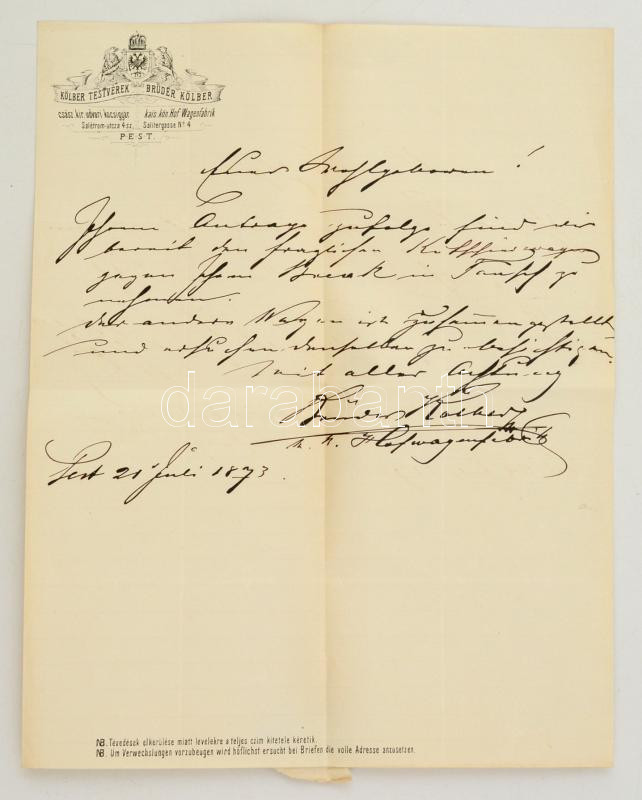 KÖLBER TESTVÉREK BRÜDER KÖLBER
császi kir. udvari kocsigyár kais. kön. Hof Wagenfabrik
Salétrom-utcza 4 sz. Salitergasse Nº 4
PEST.
Euer Wohlgeboren!
Ihrem Antrage zufolge sind wir
bereit den fraglichen
gegen Ihren Break in Tausch zu
nehmen.
der andere Wagen ist zusammengestellt
und ersuchen denselben zu besichtigen.
Mit aller Achtung
Brüder Kölber
k. k. Hofwagenfabrik
Pest 21 Juli 1873.
darabanth
NB. Tévedések elkerülése miatt levelekre a teljes czim kitétele kéretik.
NB. Um Verwechslungen vorzubeugen wird höflichst ersucht bei Briefen die volle Adresse anzusetzen.